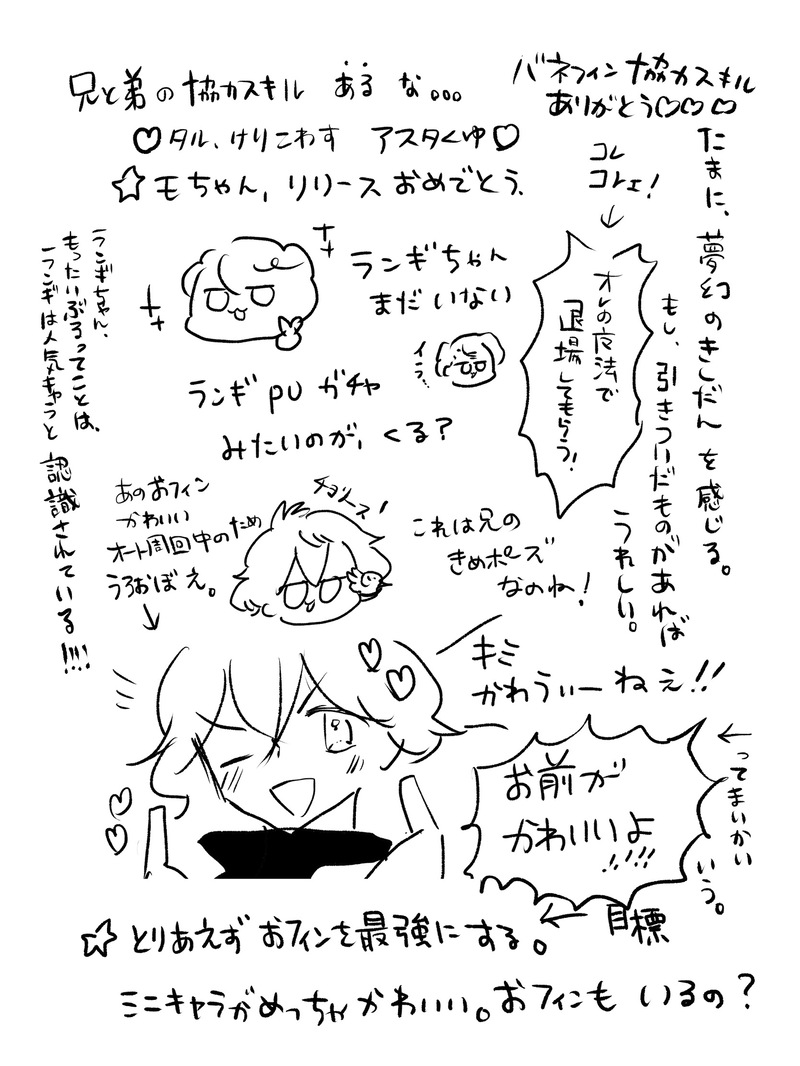 兄と弟の協力スキル あるな...
バネフィン協力スキル
ありがとう♡♡♡
♡タル、けりこわす アスタくゆ♡
☆モちゃん、リリースおめでとう。
コレ
コレェ!
たまに、夢幻のきしだんを感じる。
もし、引きついだものがあれば
うれしい。
オレの魔法で
退場してもらう!
ランギちゃん
まだいない
イラ…
ランギちゃん、
もったいぶるってことは、
ランギは人気キャラと
認識されている!!!!
ランギPUガチャ
みたいのが、くる?
あのおフィン
かわいい
オート周回中のため
うろおぼえ。
チョリース!
これは兄の
きめポーズ
なのね!
キミ
かわうぃーねぇ!!
お前が
かわいいよ
!!!!
ってまいかい
いう。
☆とりあえずおフィンを最強にする。
←目標
ミニキャラがめっちゃかわいい。おフィンもいるの?